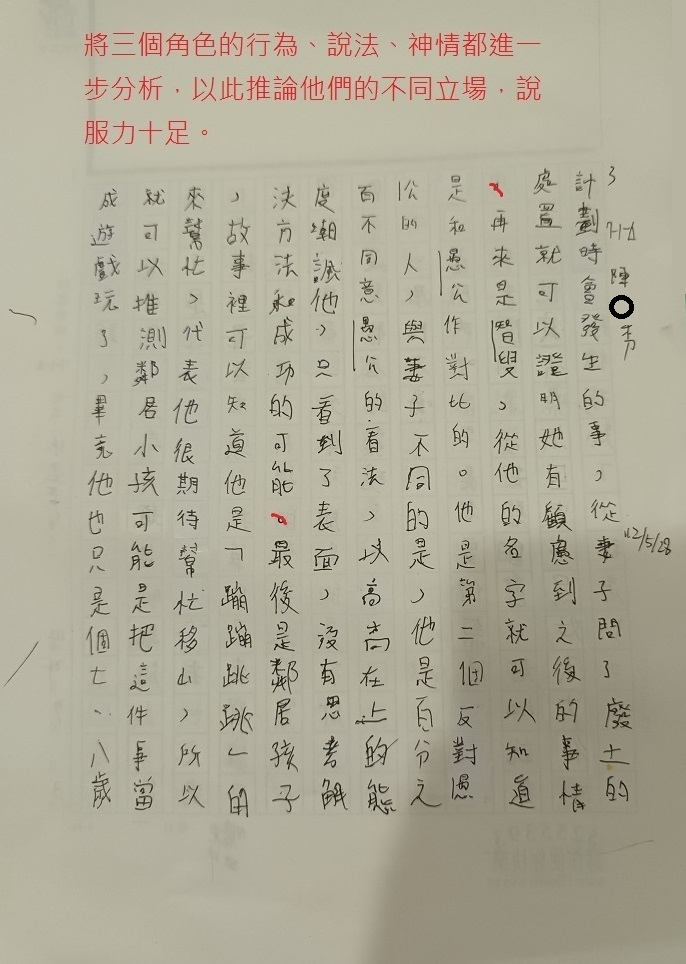 將三個角色的行為、說法、神情都進一
步分析，以此推論他們的不同立場，說
服力十足。
112/5/28
計劃時會發生的事，從妻子問了廢土的
處置就可以證明她有顧慮到之後的事情
，再來是智叟，從他的名字就可以知道
是和愚公作對比的。他是第二個反對愚
公的人，與妻子不同的是，他是百分之
百不同意愚公的看法，以高高在上的態
度嘲諷他，只看到了表面，沒有思考解
決方法和成功的可能。最後是鄰居孩子
，故事裡可以知道他是「蹦蹦跳跳」的
來幫忙，代表他很期待幫忙移山，所以
就可以推測鄰居小孩可能是把這件事當
成遊戲玩了，畢竟他也只是個七、八歲